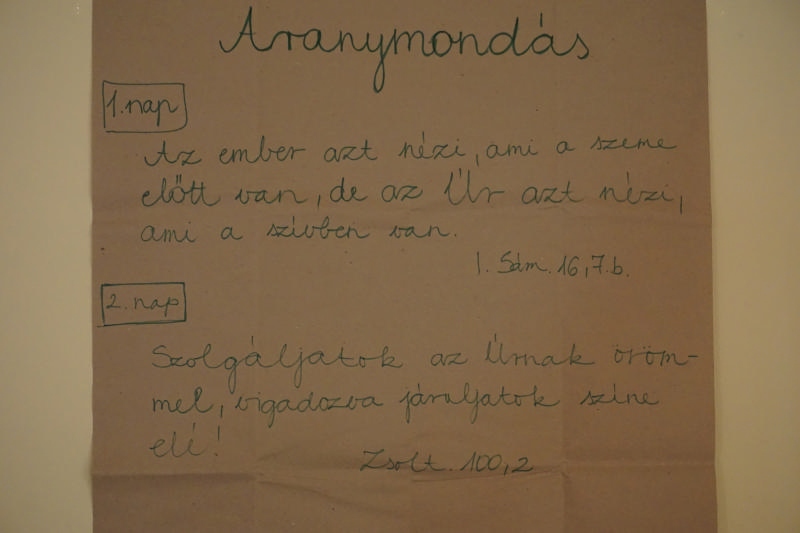 Aranymondás
1. nap
Az ember azt nézi, ami a szeme
előtt van, de az Úr azt nézi,
ami a szívben van.
I. Sám. 16,7.b.
2. nap
Szolgáljatok az Úrnak öröm-
mel, vigadozva járuljatok színe
elé!
Zsolt. 100,2